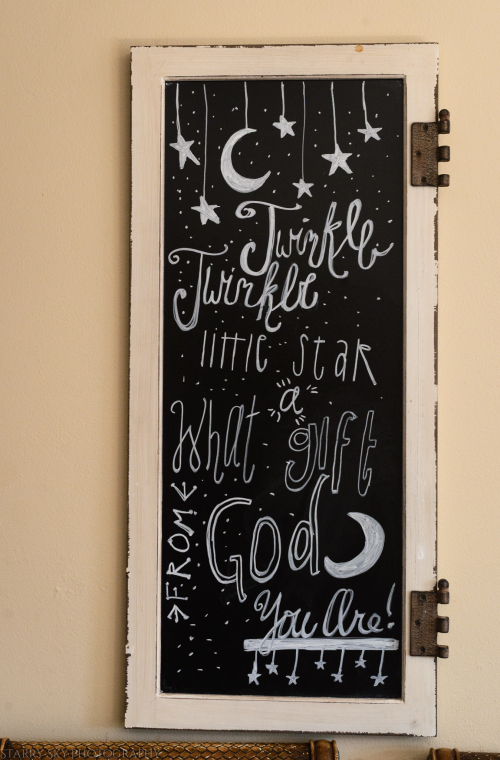 Twinkle
Twinkle
little star
What a gift
FROM God
You Are!
STARRY SKY PHOTOGRAPHY